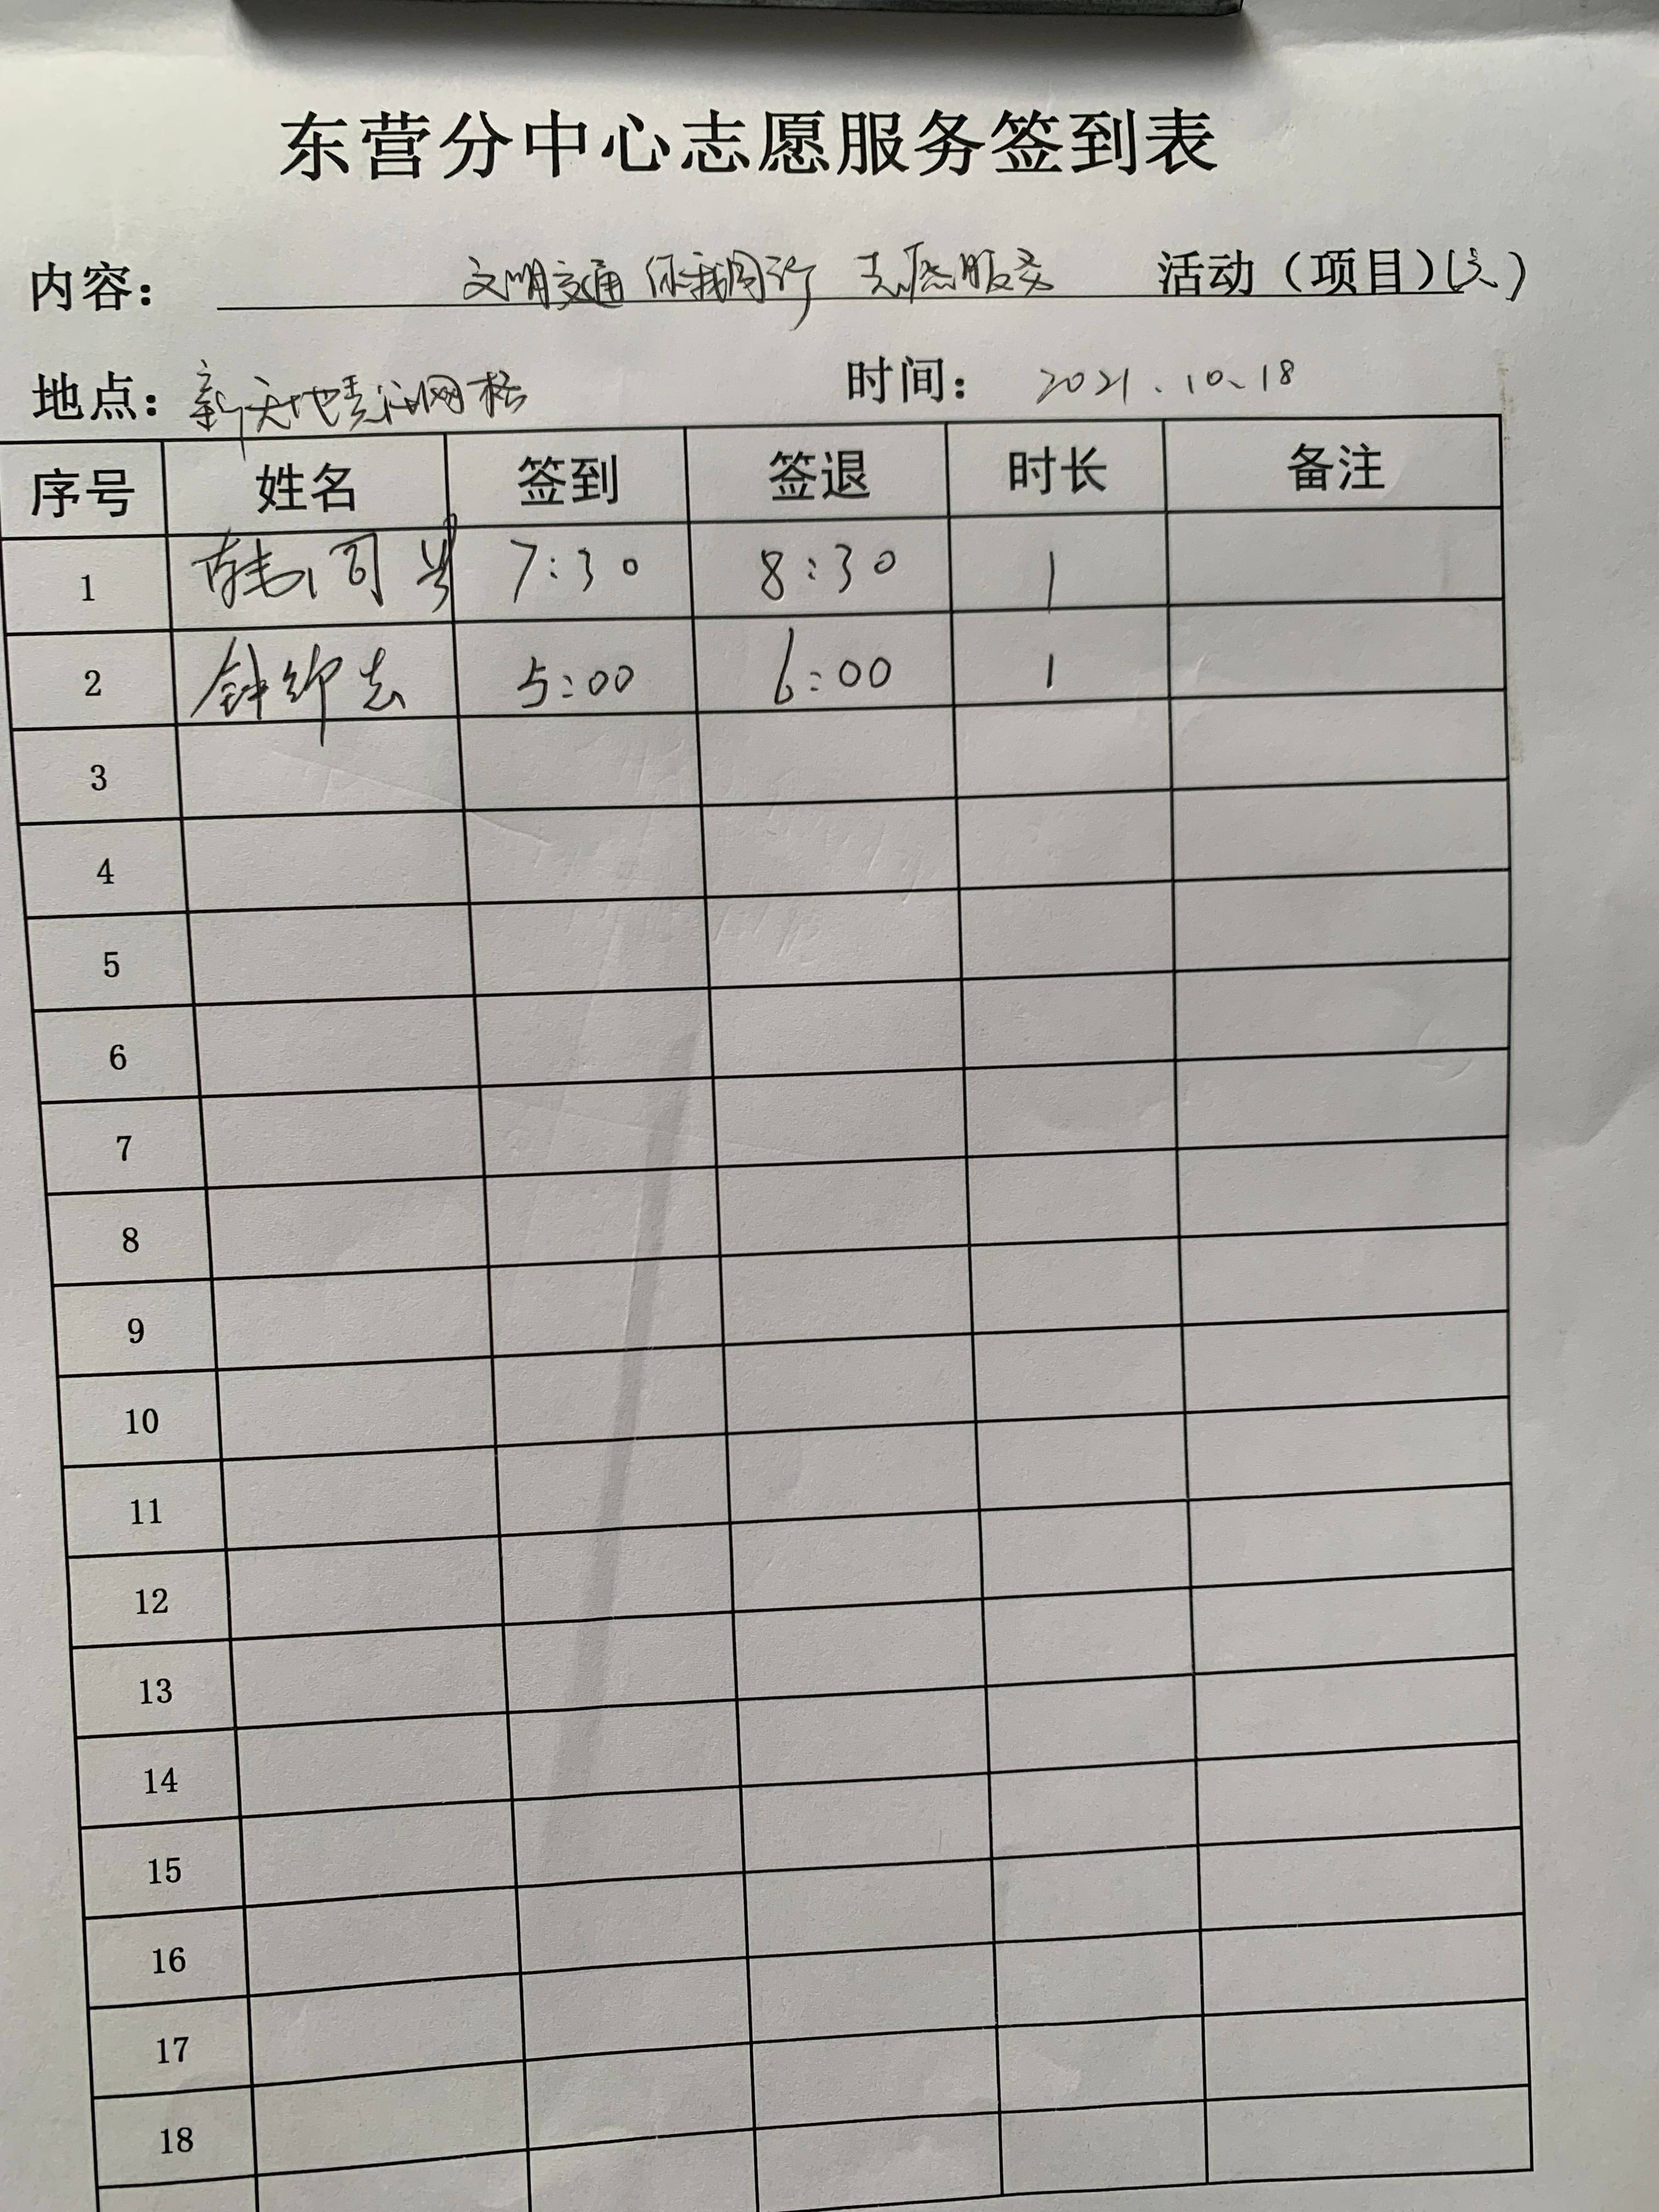 东营分中心志愿服务签到表
内容： 文明交通 你我同行 志愿服务 活动（项目）
地点：新天地责任网格 时间： 2021.10.18
序号 姓名 签到 签退 时长 备注
1 7:30 8:30 1
2 钟 志 5:00 6:00 1
3
4
5
6
7
8
9
10
11
12
13
14
15
16
17
18